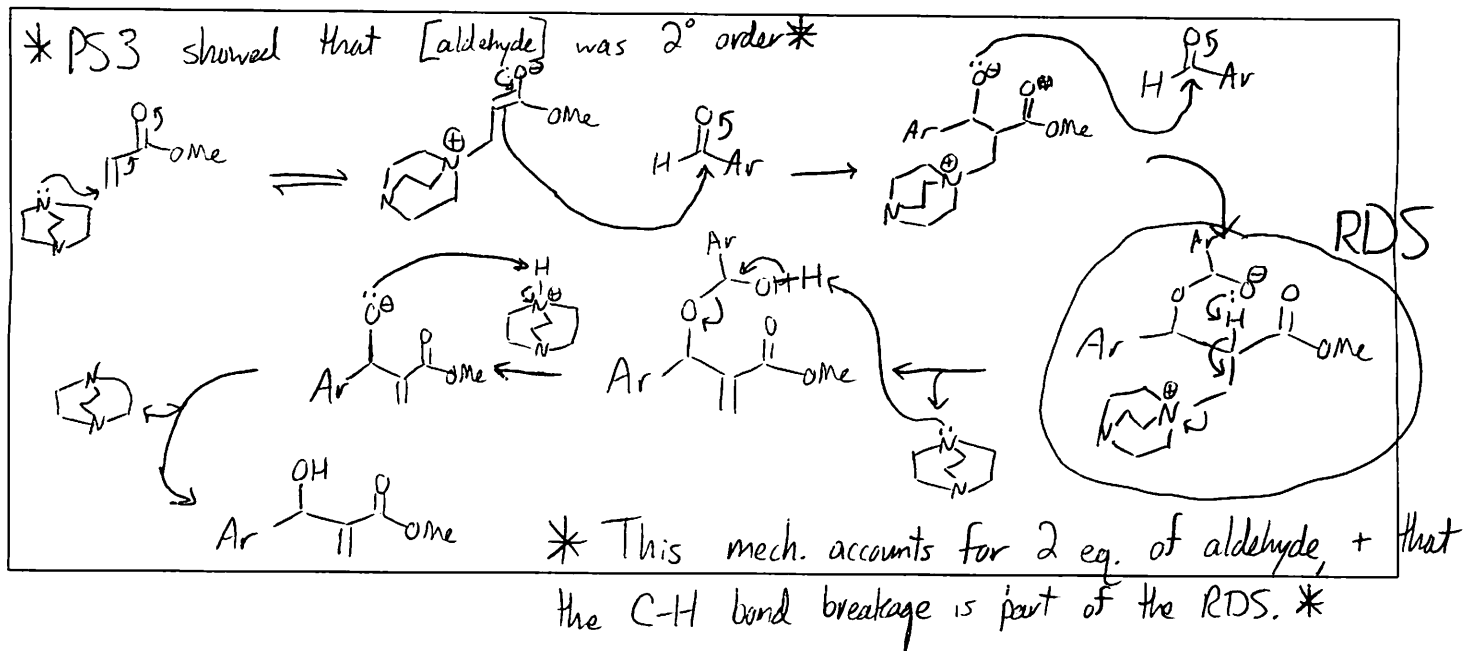 * PS3 showed that [aldehyde] was 2° order *
O O⊖ OMe O H Ar O⊖ O OMe Ar O H Ar
O OMe N N ⊕ N N ⊕ N N
RDS
Ar O O⊖ H O OMe Ar ⊕ N N
Ar O OH H O Ar OMe N N
O⊖ Ar O OMe H N⊕ N
N N
OH O Ar OMe
* This mech. accounts for 2 eq. of aldehyde, + that
the C-H bond breakage is part of the RDS. *